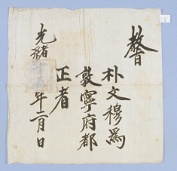 敎旨
朴文穆爲
敦寧府都
正者
光緖 年 月 日